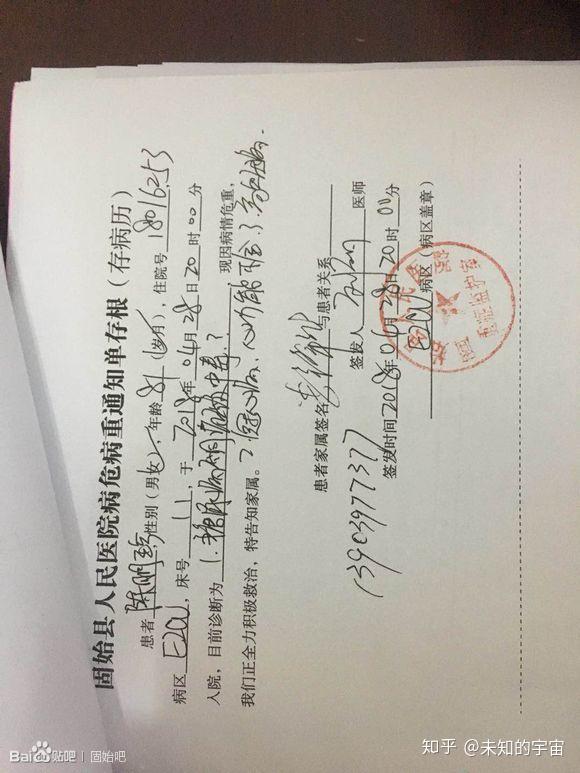 固始县人民医院病危病重通知单存根（存病历）
患者 陈明珍 性别（男女），年龄 81（岁/月），住院号 18016253
病区 EICU，床号 11，于 2018年 04月 28日 20时 00分
入院，目前诊断为 1.糖尿病 中毒？ 现因病情危重，
2.冠心病、心功能不全 3.高血压病.
我们正全力积极救治，特告知家属。
患者家属签名 与患者关系
签发人 医师
13903977377
签发时间 2018年04月28日20时00分
EICU 病区（病区盖章）
重症监护室
Baidu贴吧 | 固始吧
知乎 @未知的宇宙